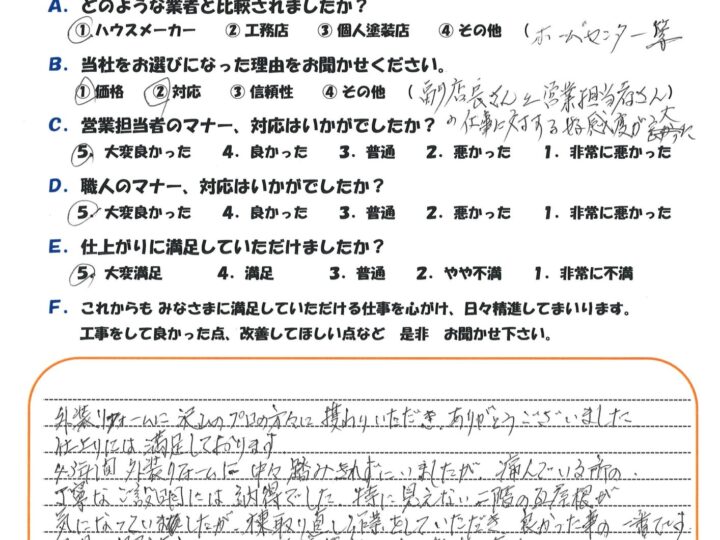 A. どのような業者と比較されましたか？
①ハウスメーカー ② 工務店 ③ 個人塗装店 ④ その他 （ ホームセンター等
B. 当社をお選びになった理由をお聞かせください。
①価格 ②対応 ③信頼性 ④ その他 （副店長さんと営業担当者さん）
の仕事に対する好感度が大
C. 営業担当者のマナー、対応はいかがでしたか？
5. 大変良かった 4. 良かった 3. 普通 2. 悪かった 1. 非常に悪かった
D. 職人のマナー、対応はいかがでしたか？
5. 大変良かった 4. 良かった 3. 普通 2. 悪かった 1. 非常に悪かった
E. 仕上がりに満足していただけましたか？
5. 大変満足 4. 満足 3. 普通 2. やや不満 1. 非常に不満
F. これからも みなさまに満足していただける仕事を心がけ、日々精進してまいります。
工事をして良かった点、改善してほしい点など 是非 お聞かせ下さい。
外装リフォームに沢山のプロの方々に携わりいただき、ありがとうございました
仕上りには満足しております
外装リフォームに中々踏みきれずにいましたが、痛んでいる所の、
丁寧なご説明には納得でした。特に見えない二階の瓦屋根が
気になっていましたが、棟取り直し作業をしていただき、良かった事の一番です